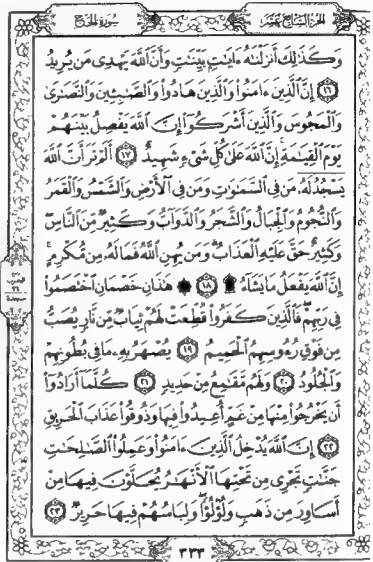 الجزء السابع عشر
سورة الحج
وَكَذَٰلِكَ أَنزَلْنَٰهُ ءَايَٰتٍۭ بَيِّنَٰتٍ وَأَنَّ ٱللَّهَ يَهْدِى مَن يُرِيدُ
١٦ إِنَّ ٱلَّذِينَ ءَامَنُوا۟ وَٱلَّذِينَ هَادُوا۟ وَٱلصَّٰبِـِٔينَ وَٱلنَّصَٰرَىٰ
وَٱلْمَجُوسَ وَٱلَّذِينَ أَشْرَكُوٓا۟ إِنَّ ٱللَّهَ يَفْصِلُ بَيْنَهُمْ
يَوْمَ ٱلْقِيَٰمَةِ إِنَّ ٱللَّهَ عَلَىٰ كُلِّ شَىْءٍ شَهِيدٌ ١٧ أَلَمْ تَرَ أَنَّ ٱللَّهَ
يَسْجُدُ لَهُۥ مَن فِى ٱلسَّمَٰوَٰتِ وَمَن فِى ٱلْأَرْضِ وَٱلشَّمْسُ وَٱلْقَمَرُ
وَٱلنُّجُومُ وَٱلْجِبَالُ وَٱلشَّجَرُ وَٱلدَّوَآبُّ وَكَثِيرٌ مِّنَ ٱلنَّاسِ
وَكَثِيرٌ حَقَّ عَلَيْهِ ٱلْعَذَابُ وَمَن يُهِنِ ٱللَّهُ فَمَا لَهُۥ مِن مُّكْرِمٍ
إِنَّ ٱللَّهَ يَفْعَلُ مَا يَشَآءُ ۩ ١٨ ۞ هَٰذَانِ خَصْمَانِ ٱخْتَصَمُوا۟
فِى رَبِّهِمْ فَٱلَّذِينَ كَفَرُوا۟ قُطِّعَتْ لَهُمْ ثِيَابٌ مِّن نَّارٍ يُصَبُّ
مِن فَوْقِ رُءُوسِهِمُ ٱلْحَمِيمُ ١٩ يُصْهَرُ بِهِۦ مَا فِى بُطُونِهِمْ
وَٱلْجُلُودُ ٢٠ وَلَهُم مَّقَٰمِعُ مِنْ حَدِيدٍ ٢١ كُلَّمَآ أَرَادُوٓا۟
أَن يَخْرُجُوا۟ مِنْهَا مِنْ غَمٍّ أُعِيدُوا۟ فِيهَا وَذُوقُوا۟ عَذَابَ ٱلْحَرِيقِ
٢٢ إِنَّ ٱللَّهَ يُدْخِلُ ٱلَّذِينَ ءَامَنُوا۟ وَعَمِلُوا۟ ٱلصَّٰلِحَٰتِ
جَنَّٰتٍ تَجْرِى مِن تَحْتِهَا ٱلْأَنْهَٰرُ يُحَلَّوْنَ فِيهَا مِنْ
أَسَاوِرَ مِن ذَهَبٍ وَلُؤْلُؤًا وَلِبَاسُهُمْ فِيهَا حَرِيرٌ ٢٣
٣٣٤